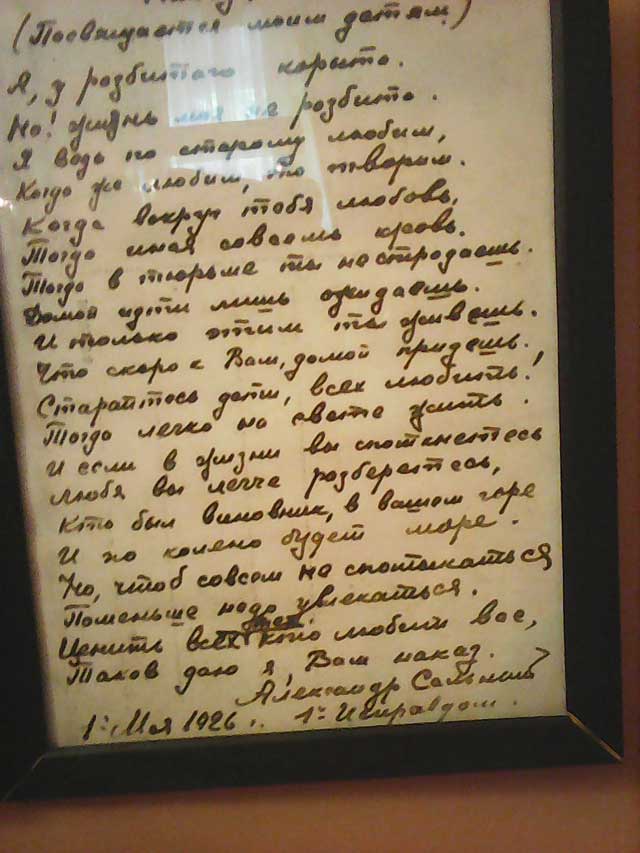 (Посвящается моим детям)
Я, у розбитаго корыта.
Но! жизнь моя не розбита.
Я ведь по старому любим,
Когда же любим, то творим.
Когда вокруг тебя любовь,
Тогда иная совсемъ кровь.
Тогда в тюрьме ты нестродаешь.
Домой идти лишь ожидаешь.
И только этим ты живешь.
Что скоро к Вам, домой придешь.
Старайтесь дети, всех любить!
Тогда легко на свете жить.
И если в жизни вы споткнетесь
Любя вы легче розберетесь,
Кто был виновник, в вашем горе
И по колено будет море.
Но, чтоб совсем не спотыкаться
Поменьше надо увлекаться.
Ценить всех кто любили вас,
Таков даю я, Вам наказ.
Александр
1го Мая 1926 г. 1й Исправдом.